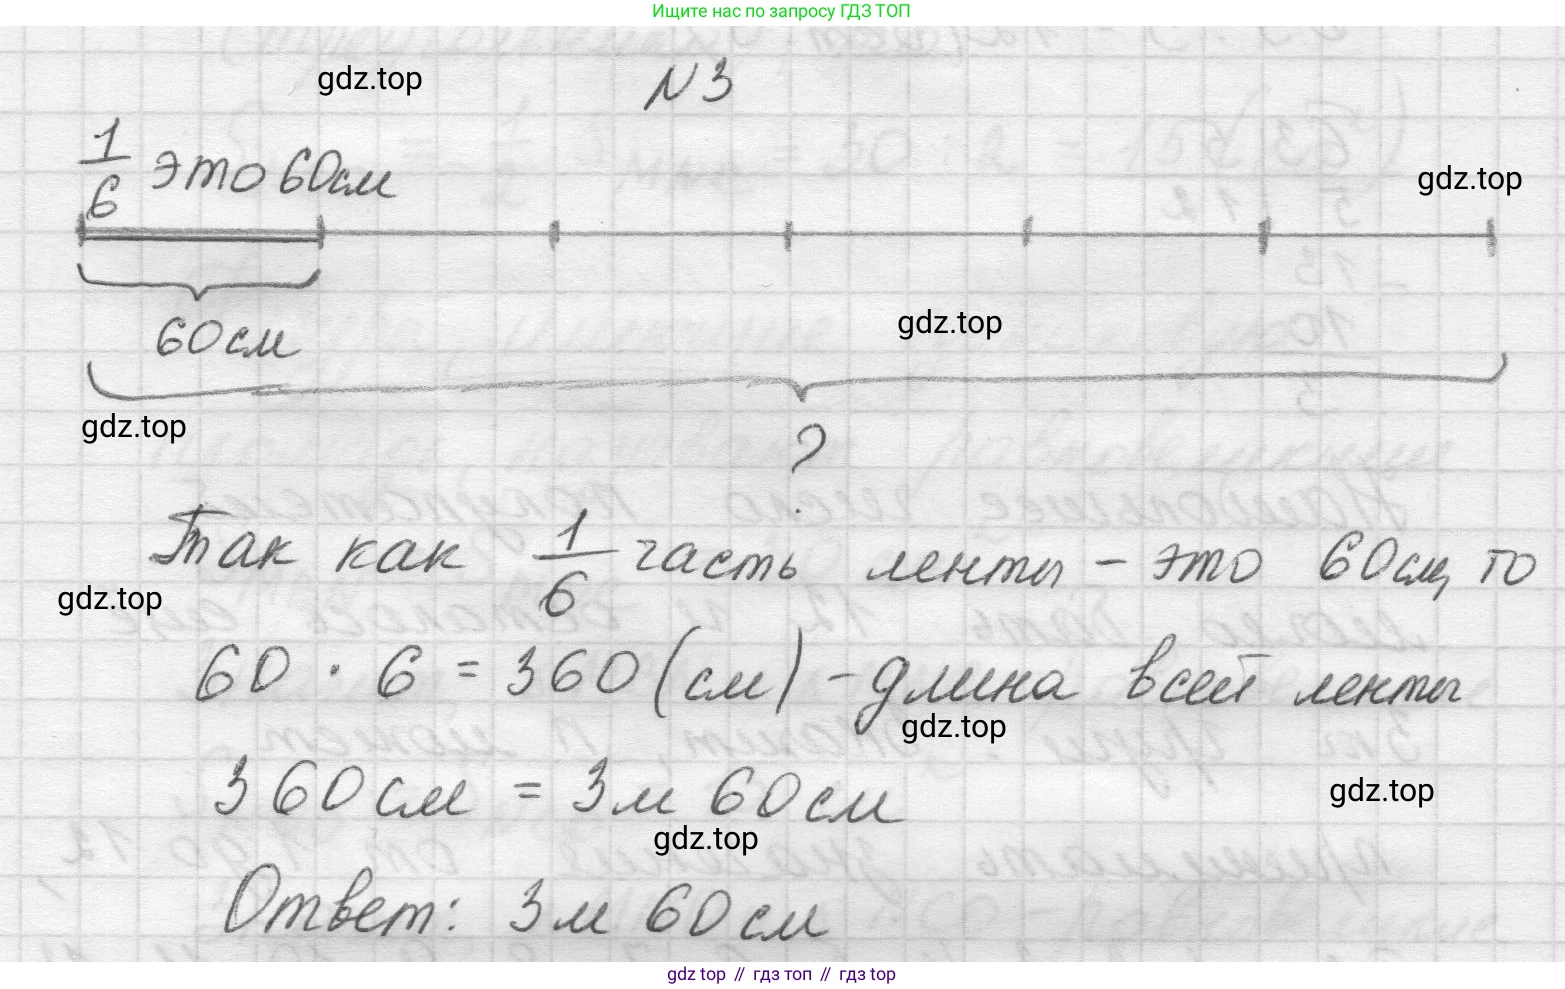 Ищите нас по запросу ГДЗ ТОП
gdz.top
N 3
1/6 это 60см
gdz.top
60см
gdz.top
gdz.top
?
Так как 1/6 часть ленты – это 60см, то
gdz.top
60 · 6 = 360 (см) – длина всей ленты
gdz.top
360 см = 3м 60см
gdz.top
gdz.top
Ответ: 3м 60см
gdz top // гдз топ // гдз top